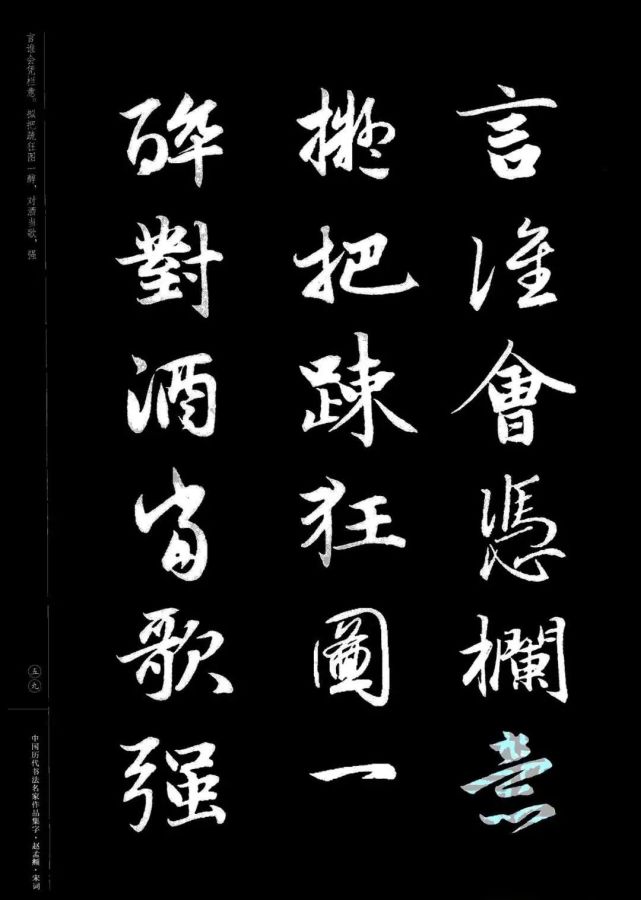 言誰會憑欄意
擬把踈狂圖一
醉對酒當歌强
言谁会凭栏意。拟把疏狂图一醉，对酒当歌，强
五九
中国历代书法名家作品集字·赵孟頫·宋词